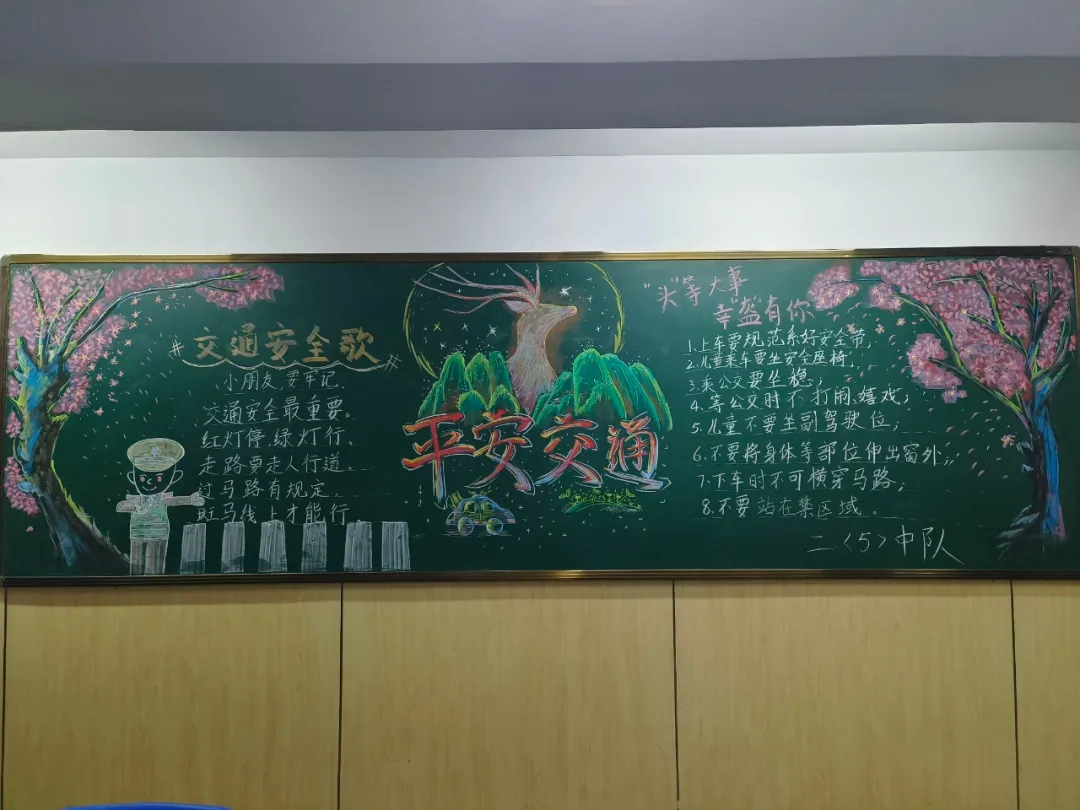 #交通安全歌#
小朋友,要牢记,
交通安全最重要。
红灯停,绿灯行,
走路要走人行道。
过马路有规定,
斑马线上才能行
平安交通
“头”等大事
幸“盔”有你
1.上车要规范系好安全带;
2.儿童乘车要坐安全座椅;
3.乘公交要坐稳;
4.等公交时不打闹、嬉戏;
5.儿童不要坐副驾驶位;
6.不要将身体等部位伸出窗外;
7.下车时不可横穿马路;
8.不要站在禁区域。
二〈5〉中队